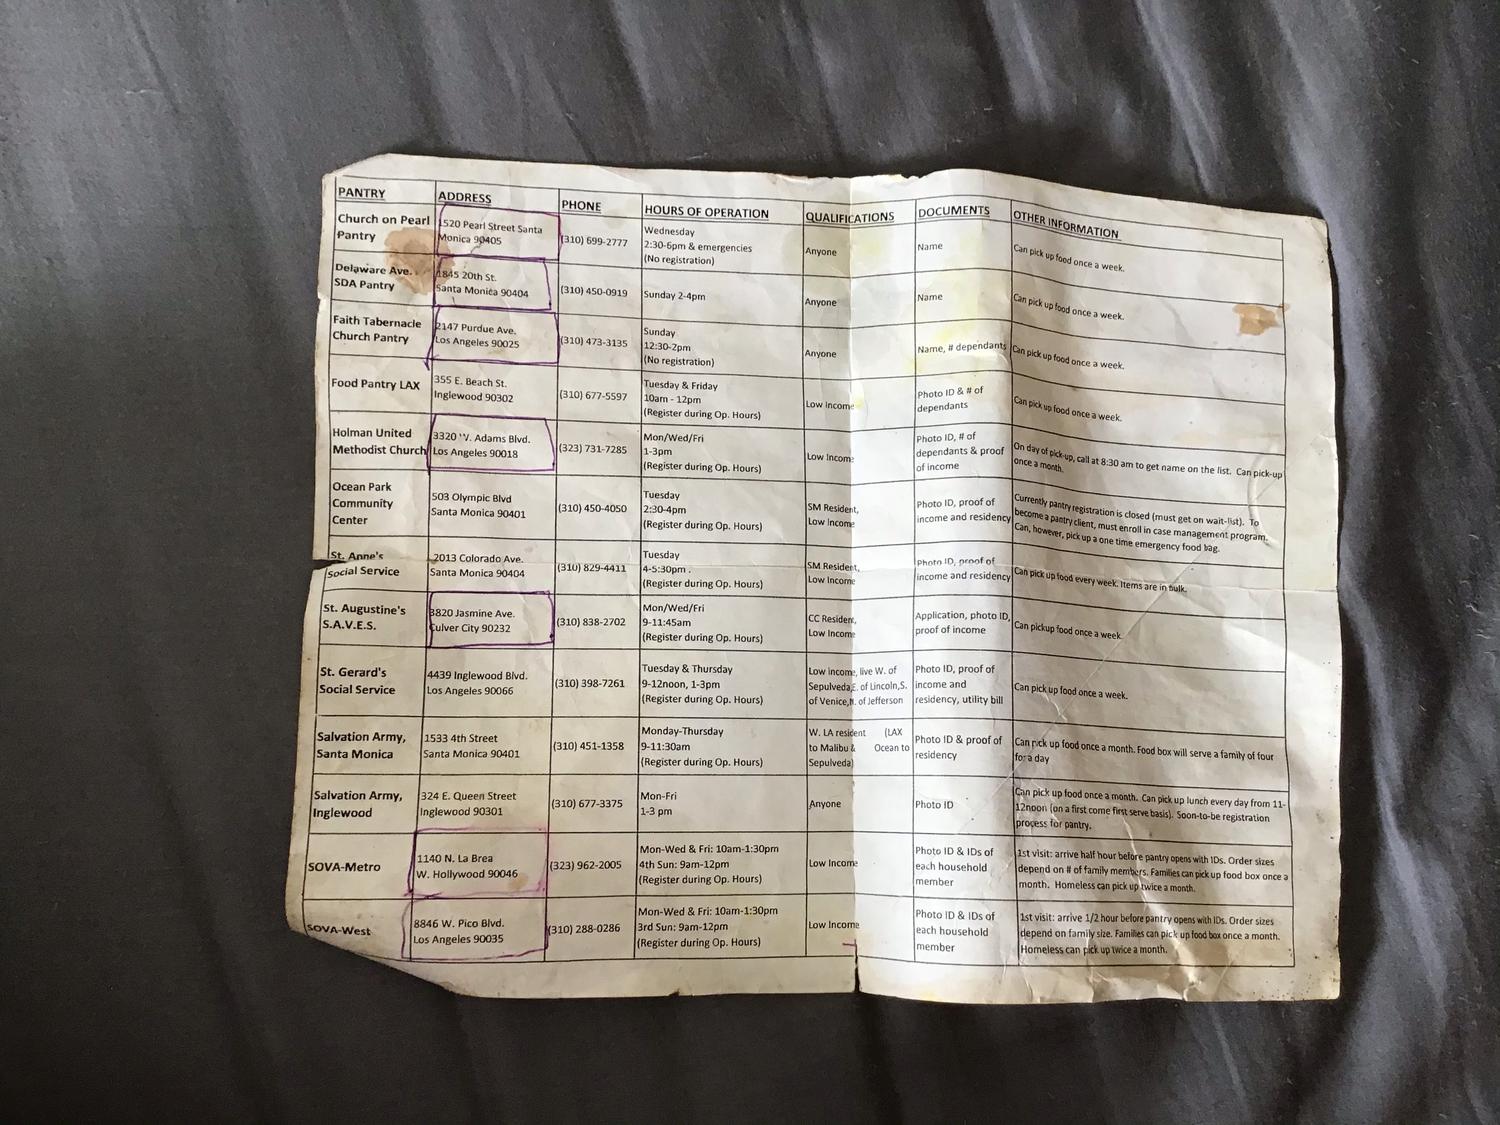 PANTRY ADDRESS PHONE HOURS OF OPERATION QUALIFICATIONS DOCUMENTS OTHER INFORMATION
Church on Pearl
Pantry
1520 Pearl Street Santa
Monica 90405
(310) 699-2777
Wednesday
2:30-6pm & emergencies
(No registration)
Anyone
Name
Can pick up food once a week.
Delaware Ave.
SDA Pantry
1845 20th St.
Santa Monica 90404
(310) 450-0919
Sunday 2-4pm
Anyone
Name
Can pick up food once a week.
Faith Tabernacle
Church Pantry
2147 Purdue Ave.
Los Angeles 90025
(310) 473-3135
Sunday
12:30-2pm
(No registration)
Anyone
Name, # dependants
Can pick up food once a week.
Food Pantry LAX
355 E. Beach St.
Inglewood 90302
(310) 677-5597
Tuesday & Friday
10am - 12pm
(Register during Op. Hours)
Low Income
Photo ID & # of
dependants
Can pick up food once a week.
Holman United
Methodist Church
3320 W. Adams Blvd.
Los Angeles 90018
(323) 731-7285
Mon/Wed/Fri
1-3pm
(Register during Op. Hours)
Low Income
Photo ID, # of
dependants & proof
of income
On day of pick-up, call at 8:30 am to get name on the list. Can pick-up
once a month.
Ocean Park
Community
Center
503 Olympic Blvd
Santa Monica 90401
(310) 450-4050
Tuesday
2:30-4pm
(Register during Op. Hours)
SM Resident,
Low Income
Photo ID, proof of
income and residency
Currently pantry registration is closed (must get on wait-list). To
become a pantry client, must enroll in case management program.
Can, however, pick up a one time emergency food bag.
St. Anne's
Social Service
2013 Colorado Ave.
Santa Monica 90404
(310) 829-4411
Tuesday
4-5:30pm .
(Register during Op. Hours)
SM Resident,
Low Income
Photo ID, proof of
income and residency
Can pick up food every week. Items are in bulk.
St. Augustine's
S.A.V.E.S.
3820 Jasmine Ave.
Culver City 90232
(310) 838-2702
Mon/Wed/Fri
9-11:45am
(Register during Op. Hours)
CC Resident,
Low Income
Application, photo ID,
proof of income
Can pickup food once a week.
St. Gerard's
Social Service
4439 Inglewood Blvd.
Los Angeles 90066
(310) 398-7261
Tuesday & Thursday
9-12noon, 1-3pm
(Register during Op. Hours)
Low income, live W. of
Sepulveda,E. of Lincoln,S.
of Venice,N. of Jefferson
Photo ID, proof of
income and
residency, utility bill
Can pick up food once a week.
Salvation Army,
Santa Monica
1533 4th Street
Santa Monica 90401
(310) 451-1358
Monday-Thursday
9-11:30am
(Register during Op. Hours)
W. LA resident (LAX
to Malibu & Ocean to
Sepulveda)
Photo ID & proof of
residency
Can pick up food once a month. Food box will serve a family of four
for a day
Salvation Army,
Inglewood
324 E. Queen Street
Inglewood 90301
(310) 677-3375
Mon-Fri
1-3 pm
Anyone
Photo ID
Can pick up food once a month. Can pick up lunch every day from 11-
12noon (on a first come first serve basis). Soon-to-be registration
process for pantry.
SOVA-Metro
1140 N. La Brea
W. Hollywood 90046
(323) 962-2005
Mon-Wed & Fri: 10am-1:30pm
4th Sun: 9am-12pm
(Register during Op. Hours)
Low Income
Photo ID & IDs of
each household
member
1st visit: arrive half hour before pantry opens with IDs. Order sizes
depend on # of family members. Families can pick up food box once a
month. Homeless can pick up twice a month.
SOVA-West
8846 W. Pico Blvd.
Los Angeles 90035
(310) 288-0286
Mon-Wed & Fri: 10am-1:30pm
3rd Sun: 9am-12pm
(Register during Op. Hours)
Low Income
Photo ID & IDs of
each household
member
1st visit: arrive 1/2 hour before pantry opens with IDs. Order sizes
depend on family size. Families can pick up food box once a month.
Homeless can pick up twice a month.